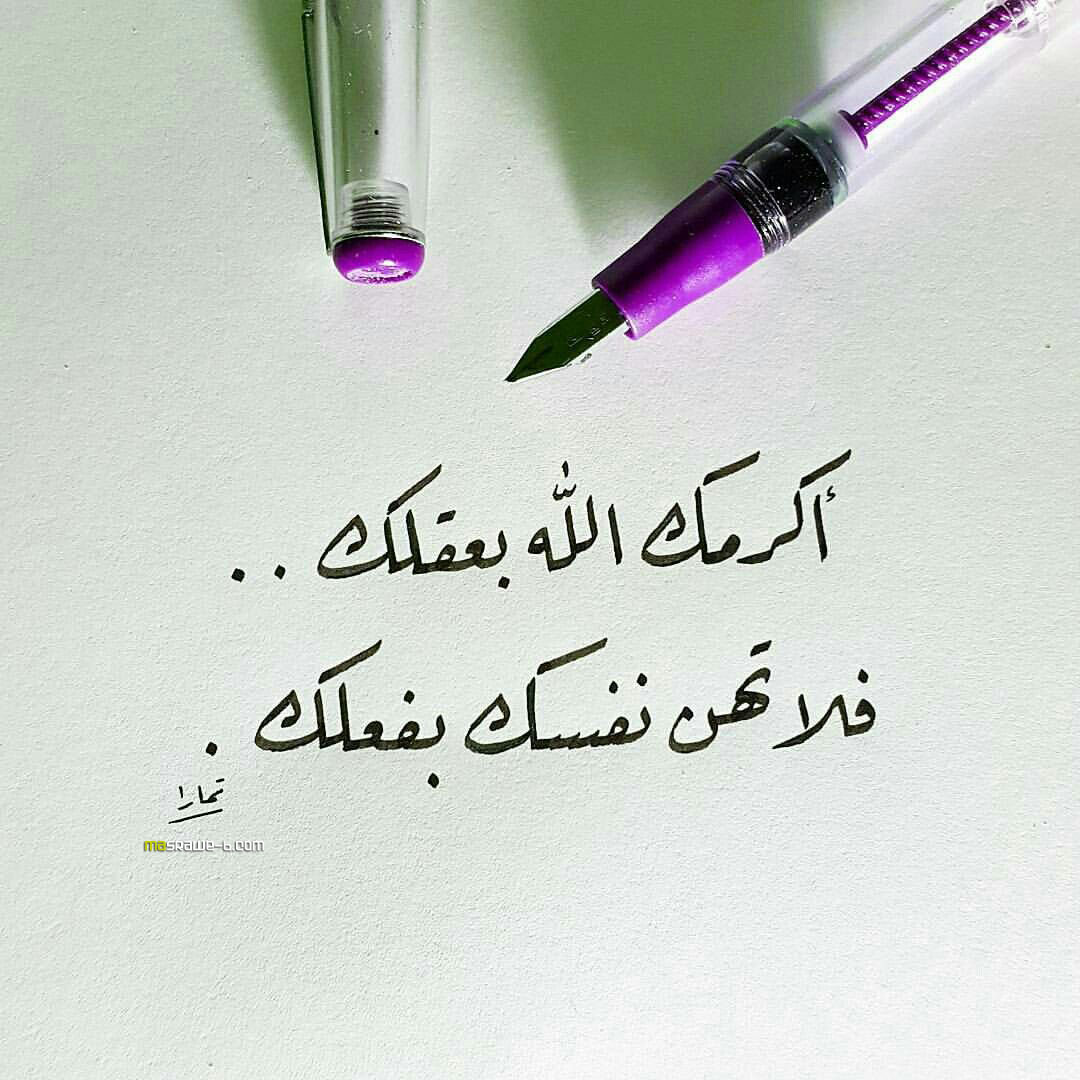 أكرمك الله بعقلك ..
فلا تهن نفسك بفعلك .
تمارا
masrawe-6.com